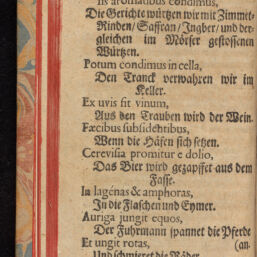 aromatibus condimus,
Die Gerichte würtzen wir mit Zimmet-
Rinden/Saffran/Ingber/und der-
gleichen im Mörser gestossenen
Würtzen.
Potum condimus in cella,
Den Tranck verwahren wir im
Keller.
Ex uvis fit vinum,
Aus den Trauben wird der Wein.
Fæcibus subsidentibus,
Wenn die Häfen sich setzen.
Cerevisia promitur e dolio,
Das Bier wird gezapffet aus dem
Fasse.
In lagenas & amphoras,
In die Flaschen und Eymer.
Auriga jungit equos,
Der Fuhrmann spannet die Pferde
Et ungit rotas, (an.
Und schmieret die Räder